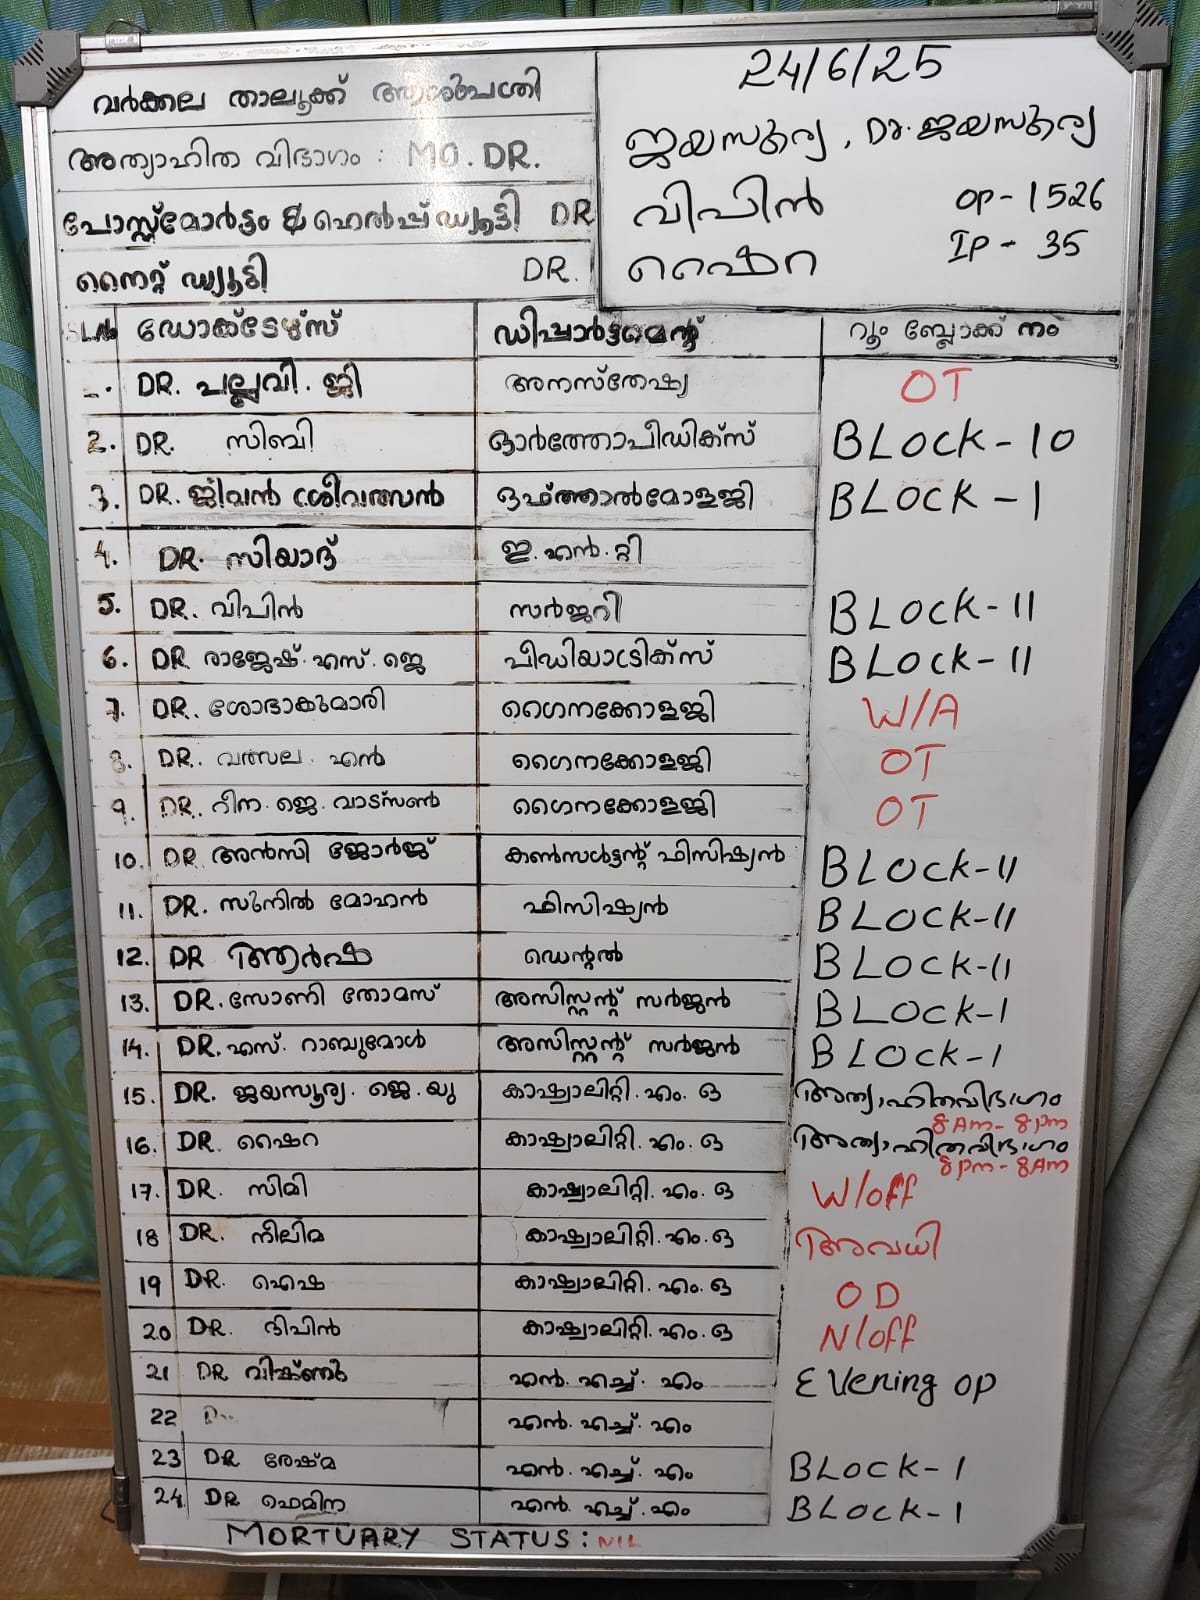 24/6/25
വർക്കല താലൂക്ക് ആശുപത്രി
അത്യാഹിത വിഭാഗം : MO. DR. ജയസൂര്യ, Dr. ജയസൂര്യ
പോസ്റ്റ്മോർട്ടം & ഹെൽപ്പ് ഡ്യൂട്ടി DR വിപിൻ OP - 1526
നൈറ്റ് ഡ്യൂട്ടി DR. ഷൈറ IP - 35
SL.No ഡോക്ടേഴ്സ് ഡിപ്പാർട്ടമെന്റ് റൂം ബ്ലോക്ക് നം
DR. പല്ലവി. ജി അനസ്തേഷ്യ OT
2. DR. സിബി ഓർത്തോപീഡിക്സ് BLOCK - 10
3. DR. ജീവൻ ശ്രീവത്സൻ ഒഫ്ത്താൽമോളജി BLOCK - 1
4. DR. സിയാദ് ഇ.എൻ.റ്റി
5. DR. വിപിൻ സർജറി BLOCK - 11
6. DR രാജേഷ്. എസ്. ജെ പീഡിയാട്രിക്സ് BLOCK - 11
7. DR. ശോഭാകുമാരി ഗൈനക്കോളജി W/A
8. DR. വത്സല എൻ ഗൈനക്കോളജി OT
9. DR. റീന. ജെ. വാട്സൺ ഗൈനക്കോളജി OT
10. DR അൻസി ജോർജ് കൺസൾട്ടന്റ് ഫിസിഷ്യൻ BLOCK-11
11. DR. സുനിൽ മോഹൻ ഫിസിഷ്യൻ BLOCK-11
12. DR ആർഷ ഡെന്റൽ BLOCK-11
13. DR. സോണി തോമസ് അസിസ്റ്റന്റ് സർജൻ BLOCK-1
14. DR. എസ്. റാബുമോൾ അസിസ്റ്റന്റ് സർജൻ BLOCK-1
15. DR. ജയസൂര്യ. ജെ. യു കാഷ്വാലിറ്റി. എം. ഒ അത്യാഹിതവിഭാഗം
8Am - 8pm
16. DR. ഷൈറ കാഷ്വാലിറ്റി. എം. ഒ അത്യാഹിതവിഭാഗം
8pm - 8Am
17. DR. സിമി കാഷ്വാലിറ്റി. എം. ഒ W/off
18 DR. നീലിമ കാഷ്വാലിറ്റി. എം. ഒ അവധി
19 DR. ഐഷ കാഷ്വാലിറ്റി. എം. ഒ OD
20 DR. ദിപിൻ കാഷ്വാലിറ്റി. എം. ഒ N/off
21 DR വിഷ്ണു എൻ. എച്ച്. എം Evening op
22 എൻ. എച്ച്. എം
23 DR രേഷ്മ എൻ. എച്ച്. എം BLOCK-1
24 DR ഫെമിന എൻ. എച്ച്. എം BLOCK-1
MORTUARY STATUS: NIL